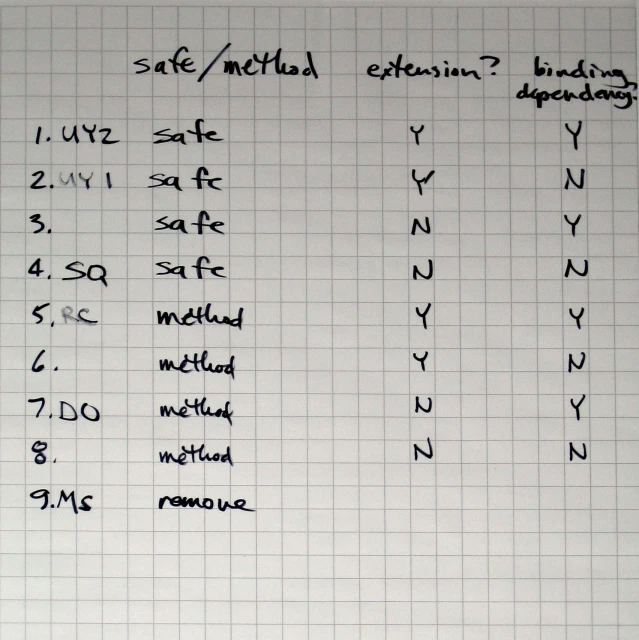 safe/method extension? binding dependency.
1. UY2 safe Y Y
2. UY1 safe Y N
3. safe N Y
4. SQ safe N N
5. RC method Y Y
6. method Y N
7. DO method N Y
8. method N N
9. MS remove